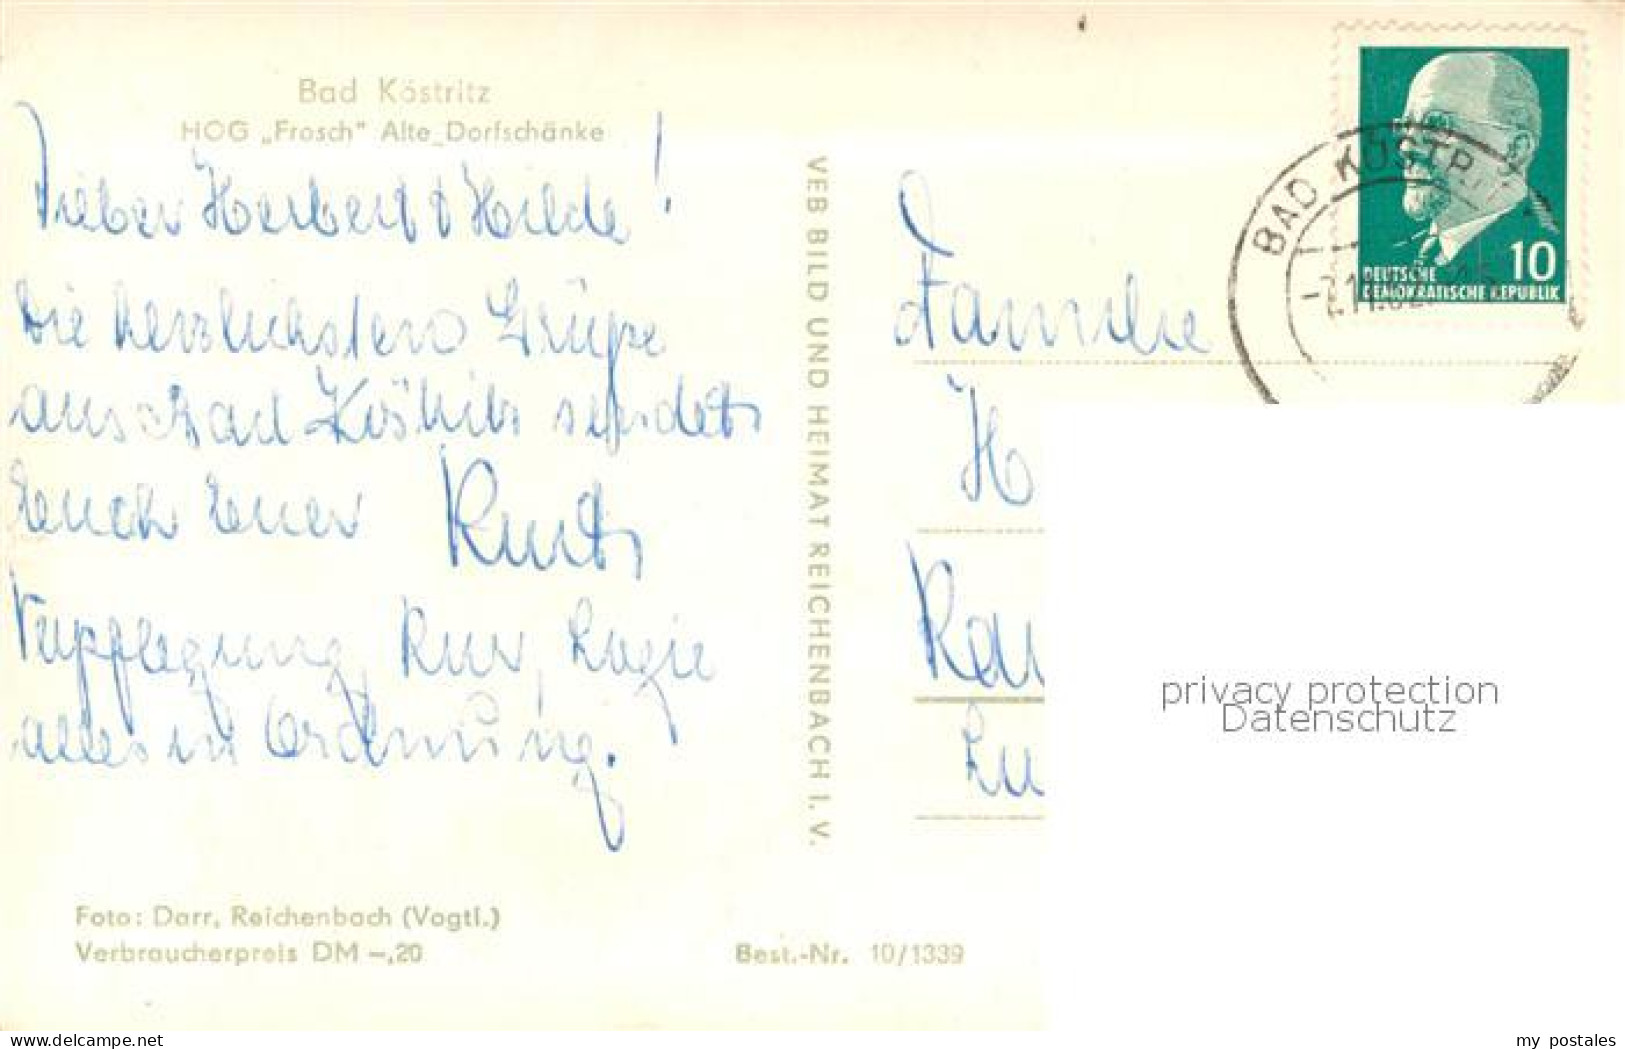 Bad Köstritz
HOG „Frosch" Alte Dorfschänke
Lieber Herbert & Hilde!
Die herzlichsten Grüße
aus Bad Köstritz sendet
Euch Euer Kurt
Verpflegung, Kur, Logie
alles in Ordnung.
Foto: Darr, Reichenbach (Vogtl.)
Verbraucherpreis DM –,20
Best.-Nr. 10/1339
VEB BILD UND HEIMAT REICHENBACH I. V.
BAD KÖSTR
10
DEUTSCHE
DEMOKRATISCHE REPUBLIK
Familie
H
Ka
Lu
privacy protection
Datenschutz
www.delcampe.net
my_postales